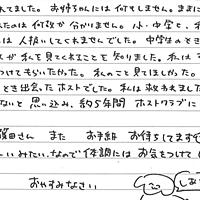 れてました。お姉ちゃんには何もしません。ままに
たのは何故か分かりません。小・中学と、私
は人扱いしてくれませんでした。中学生のとき
が私を見てくれることを知りました。私は
つけてもらいたかった。私のこと見てほしかった。
とき出会ったホストでした。私は救われました
ないと思い込み、約5年間 ホストクラブに
さん また お手紙 お待ちしてます
いみたい。なので体調には お気をつけて
おやすみなさい